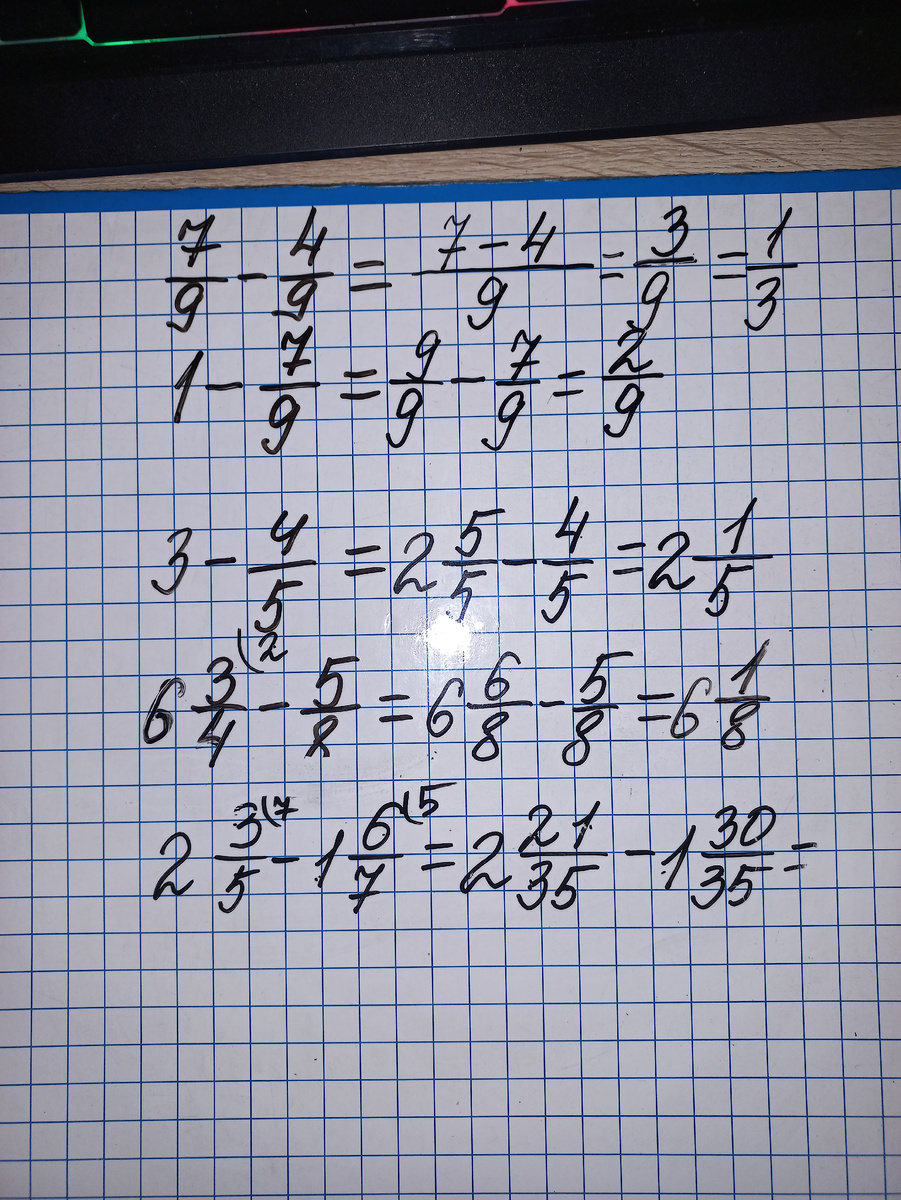 7/9 - 4/9 = (7-4)/9 = 3/9 = 1/3
1 - 7/9 = 9/9 - 7/9 = 2/9
3 - 4/5 = 2 5/5 - 4/5 = 2 1/5
6 3/4 (2 - 5/8 = 6 6/8 - 5/8 = 6 1/8
2 3/5 (7 - 1 6/7 (5 = 2 21/35 - 1 30/35 =